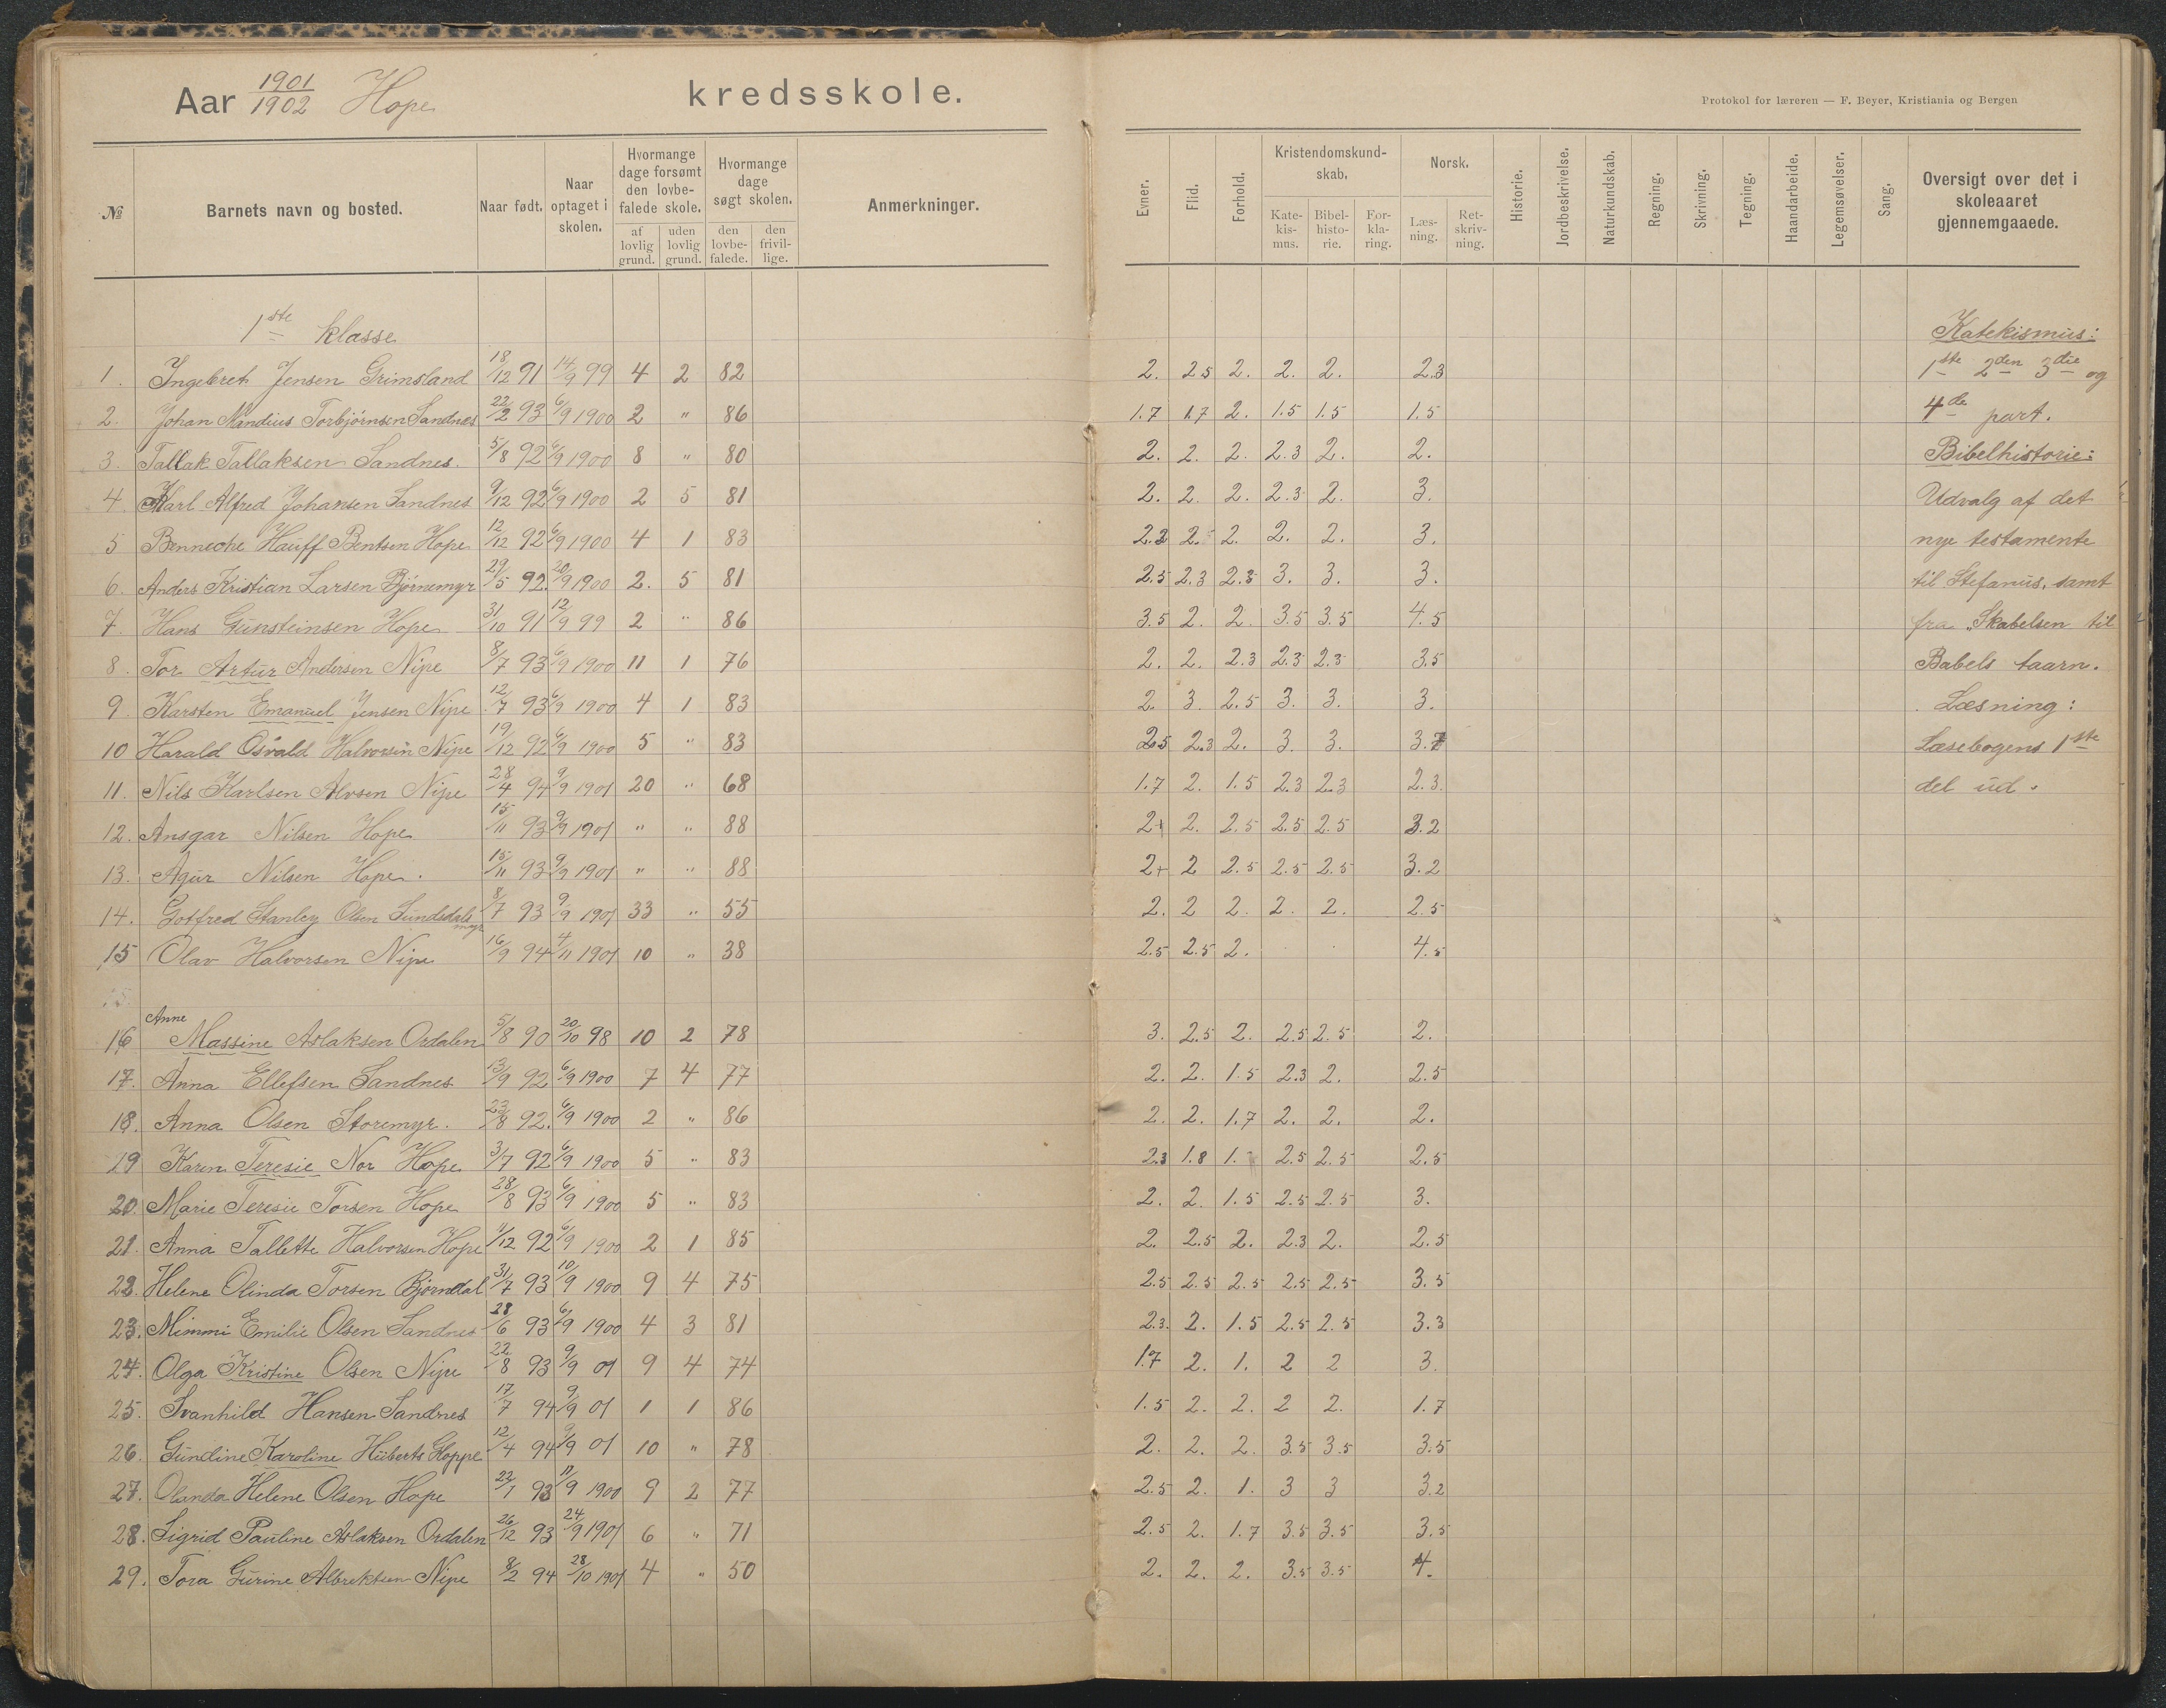 Aar 1901/1902 Hope kredsskole.
Protokol for læreren — F. Beyer, Kristiania og Bergen
№ | Barnets navn og bosted. | Naar født. | Naar optaget i skolen. | Hvormange dage forsømt den lovbefalede skole. af lovlig grund. | uden lovlig grund. | Hvormange dage søgt skolen. den lovbefalede. | den frivillige. | Anmerkninger. | Evner. | Flid. | Forhold. | Kristendomskundskab. Katekismus. | Bibelhistorie. | Forklaring. | Norsk. Læsning. | Retskrivning. | Historie. | Jordbeskrivelse. | Naturkundskab. | Regning. | Skrivning. | Tegning. | Haandarbeide. | Legemsøvelser. | Sang. | Oversigt over det i skoleaaret gjennemgaaede.
1ste klasse | Katekismus:
1. Ingebret Jensen Grimsland 18/12 91 14/9 99 4 2 82 2. 2.5 2. 2. 2. 2.3 | 1ste 2den 3die og
2. Johan Nandius Torbjørnsen Sandnes 22/2 93 6/9 1900 2 " 86 1.7 1.7 2. 1.5 1.5 1.5 | 4de part.
3. Tallak Tallaksen Sandnes. 5/8 92 6/9 1900 8 " 80 2. 2. 2. 2.3 2. 2. | Bibelhistorie:
4 Karl Alfred Johansen Sandnes 9/12 92 6/9 1900 2 5 81 2. 2. 2. 2.3 2. 3. | Udvalg af det
5 Benneche Hauff Bentsen Hope 12/12 92 6/9 1900 4 1 83 2.3 2.5 2. 2. 2. 3. | nye testamente
6. Anders Kristian Larsen Bjørnemyr 29/5 92. 20/9 1900 2. 5 81 2.5 2.3 2.3 3. 3. 3. | til Stefanus, samt
7. Hans Gunsteinsen Hope 31/10 91 12/9 99 2 " 86 3.5 2. 2. 3.5 3.5 4.5 | fra "Skabelsen til
8. Tor Artur Andersen Nipe 8/7 93 6/9 1900 11 1 76 2. 2. 2.3 2.3 2.3 3.5 | Babels taarn.
9. Karsten Emanuel Jensen Nipe 12/7 93 6/9 1900 4 1 83 2. 3. 2.5 3. 3. 3. | Læsning:
10 Harald Osvald Halvorsen Nipe 19/12 92 6/9 1900 5 " 83 2.5 2.3 2. 3. 3. 3.7 | Læsebogens 1ste
11. Nils Karlsen Alvsen Nipe 28/4 94 9/9 1901 20 " 68 1.7 2. 1.5 2.3 2.3 2.3. | del ud.
12. Ansgar Nilsen Hope 15/11 93 9/9 1901 " " 88 2+ 2. 2.5 2.5 2.5 3.2
13. Agur Nilsen Hope. 15/11 93 9/9 1901 " " 88 2+ 2 2.5 2.5 2.5 3.2
14. Gotfred Stanley Olsen Sundsdalsmyr 8/7 93 9/9 1901 33 " 55 2. 2 2. 2. 2. 2.5
15 Olav Halvorsen Nipe 16/9 94 4/11 1901 10 " 38 2.5 2.5 2. 4.5
16 Anne Massine Aslaksen Ordalen 5/8 90 20/10 98 10 2 78 3. 2.5 2. 2.5 2.5 2.
17. Anna Ellefsen Sandnes 13/9 92 6/9 1900 7 4 77 2. 2. 1.5 2.3 2. 2.5
18. Anna Olsen Storemyr. 23/8 92. 6/9 1900 2 " 86 2. 2. 1.7 2. 2. 2.
19 Karen Teresie Nor Hope 3/7 92 6/9 1900 5 " 83 2.3 1.8 1. 2.5 2.5 2.5
20. Marie Teresie Torsen Hope 28/8 93 6/9 1900 5 " 83 2. 2. 1.5 2.5 2.5 3.
21. Anna Tallette Halvorsen Hope 11/12 92 6/9 1900 2 1 85 2. 2.5 2. 2.3 2. 2.5
22. Helene Olinda Torsen Bjørndal 31/7 93 10/9 1900 9 4 75 2.5 2.5 2.5 2.5 2.5 3.5
23. Mimmi Emilie Olsen Sandnes 28/6 93 6/9 1900 4 3 81 2.3. 2. 1.5 2.5 2.5 3.3
24. Olga Kristine Olsen Nipe 22/8 93 9/9 01 9 4 74 1.7 2. 1. 2 2 3.
25. Svanhild Hansen Sandnes 17/7 94 9/9 01 1 1 86 1.5 2. 2. 2 2. 1.7
26. Gundine Karoline Huberts Hoppe 12/4 94 9/9 01 10 " 78 2. 2. 2. 3.5 3.5 3.5
27. Olanda Helene Olsen Hope 22/1 93 11/9 1900 9 2 77 2.5 2. 1. 3 3 3.2
28. Sigrid Pauline Aslaksen Ordalen 26/12 93 24/9 1901 6 " 71 2.5 2. 1.7 3.5 3.5 3.5
29. Tora Gurine Albrektsen Nipe 8/2 94 28/10 1901 4 " 50 2. 2. 2. 3.5 3.5 4.